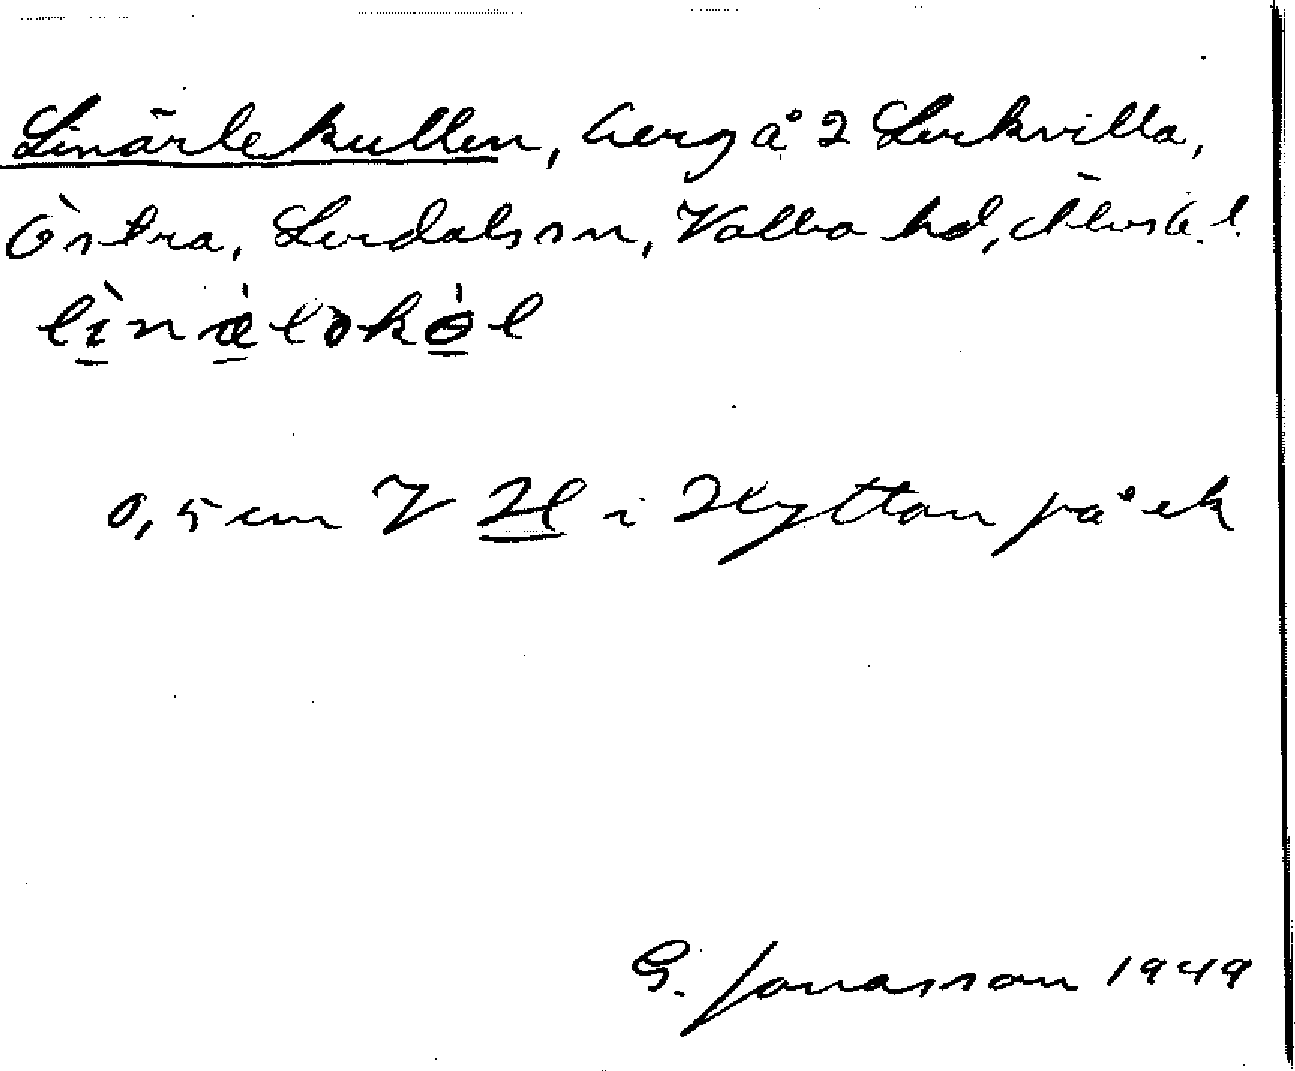 Linärlekullen, berg å 2 Lerkvilla,
Östra, Lerdals sn, Valbo hd, Älvsb. l.
lìnæ̀ləkɵ̀l
0,5 cm V H i Hyttan på ek
G. Jonasson 1949